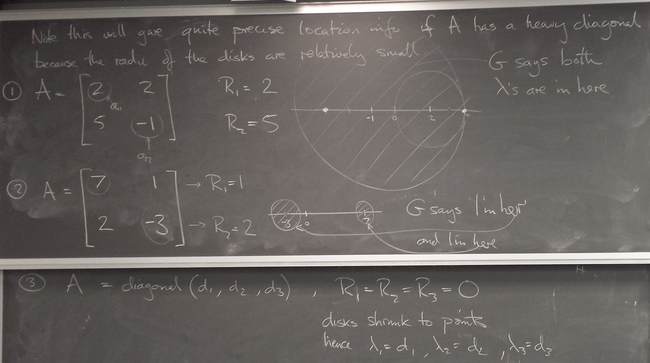 Note this will give quite precise location info if A has a heavy diagonal
because the radii of the disks are relatively small
G says both
λ's are in here
① A = [2 2
5 -1]
a₁₁
a₂₂
R₁ = 2
R₂ = 5
-1 0 2
② A = [7 1
2 -3]
→ R₁ = 1
→ R₂ = 2
-3 0 7
G says 1 in here
and 1 in here
③ A = diagonal (d₁, d₂, d₃), R₁ = R₂ = R₃ = 0
disks shrink to points
hence λ₁ = d₁, λ₂ = d₂, λ₃ = d₃.